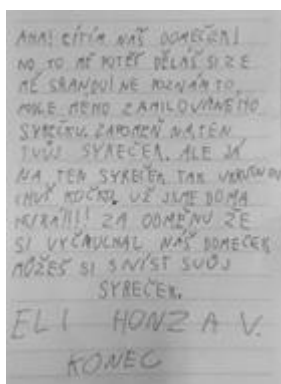 AHA! CÍTÍM NÁŠ DOMEČEK!
NO TO MĚ POTĚŠ DĚLÁŠ SI ZE
MĚ SRANDU! NE POZNÁM TO
MÉHO ZAMILOVANÉHO
SYREČKU. ZAPOMEŇ NA TEN
TVŮJ SYREČEK. ALE JÁ
NA TEN SYREČEK TAK
CHUŤ KOČKO. UŽ JSME DOMA
ZA ODMĚNU ŽE
SI VYČMUCHAL NÁŠ DOMEČEK
MŮŽEŠ SI SNÍST SVŮJ
SYREČEK.
ELI HONZA V.
KONEC